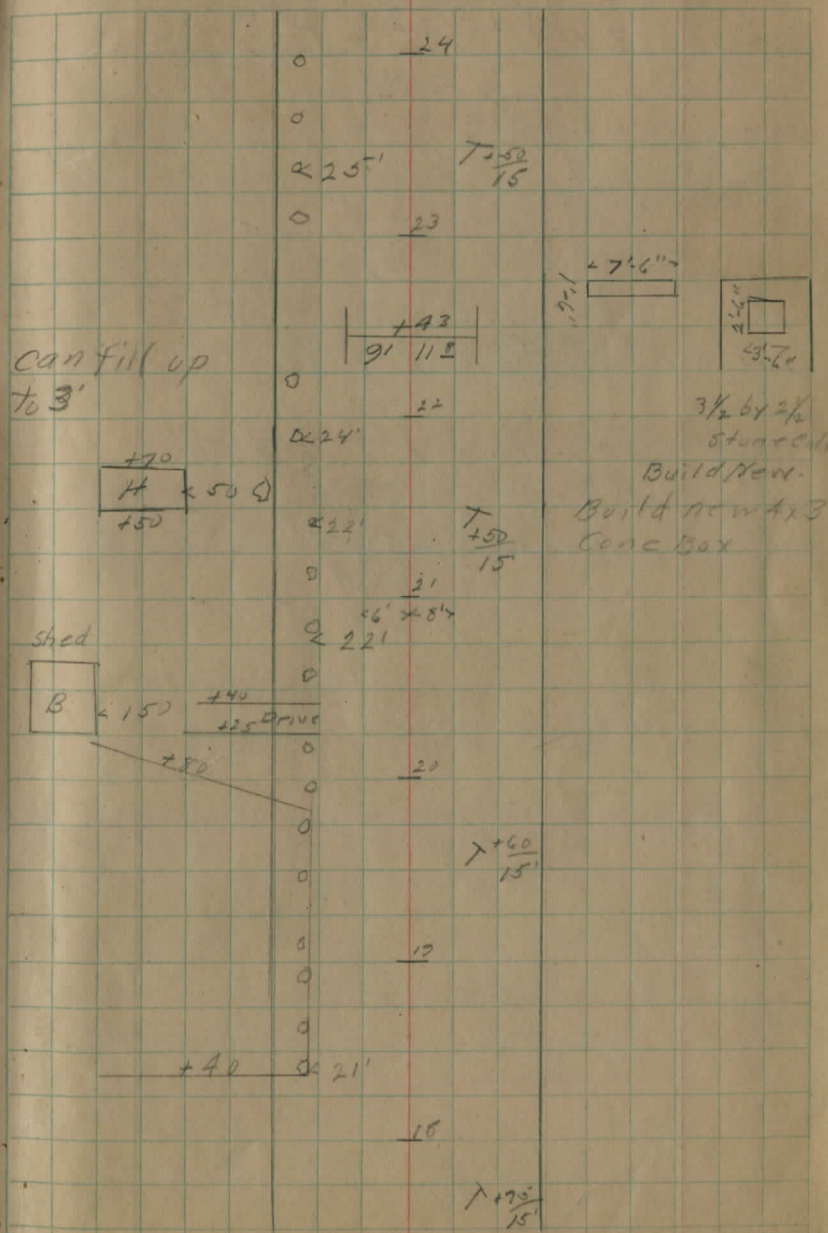 24
25'
T +50
15
23
7'-6"
2'-6"
3'-6"
+43
9' 11
can fill up
to 3'
22
3 1/2 by 2 1/2
Stone
24'
Build New.
+70
H
50
+50
Build new 4x3
Conc Box
22'
T
+50
15
21
6' 8'
22'
shed
B
150
+40
+25 Drive
+80
20
T +60
15'
19
+40
21'
18
T +75
15'